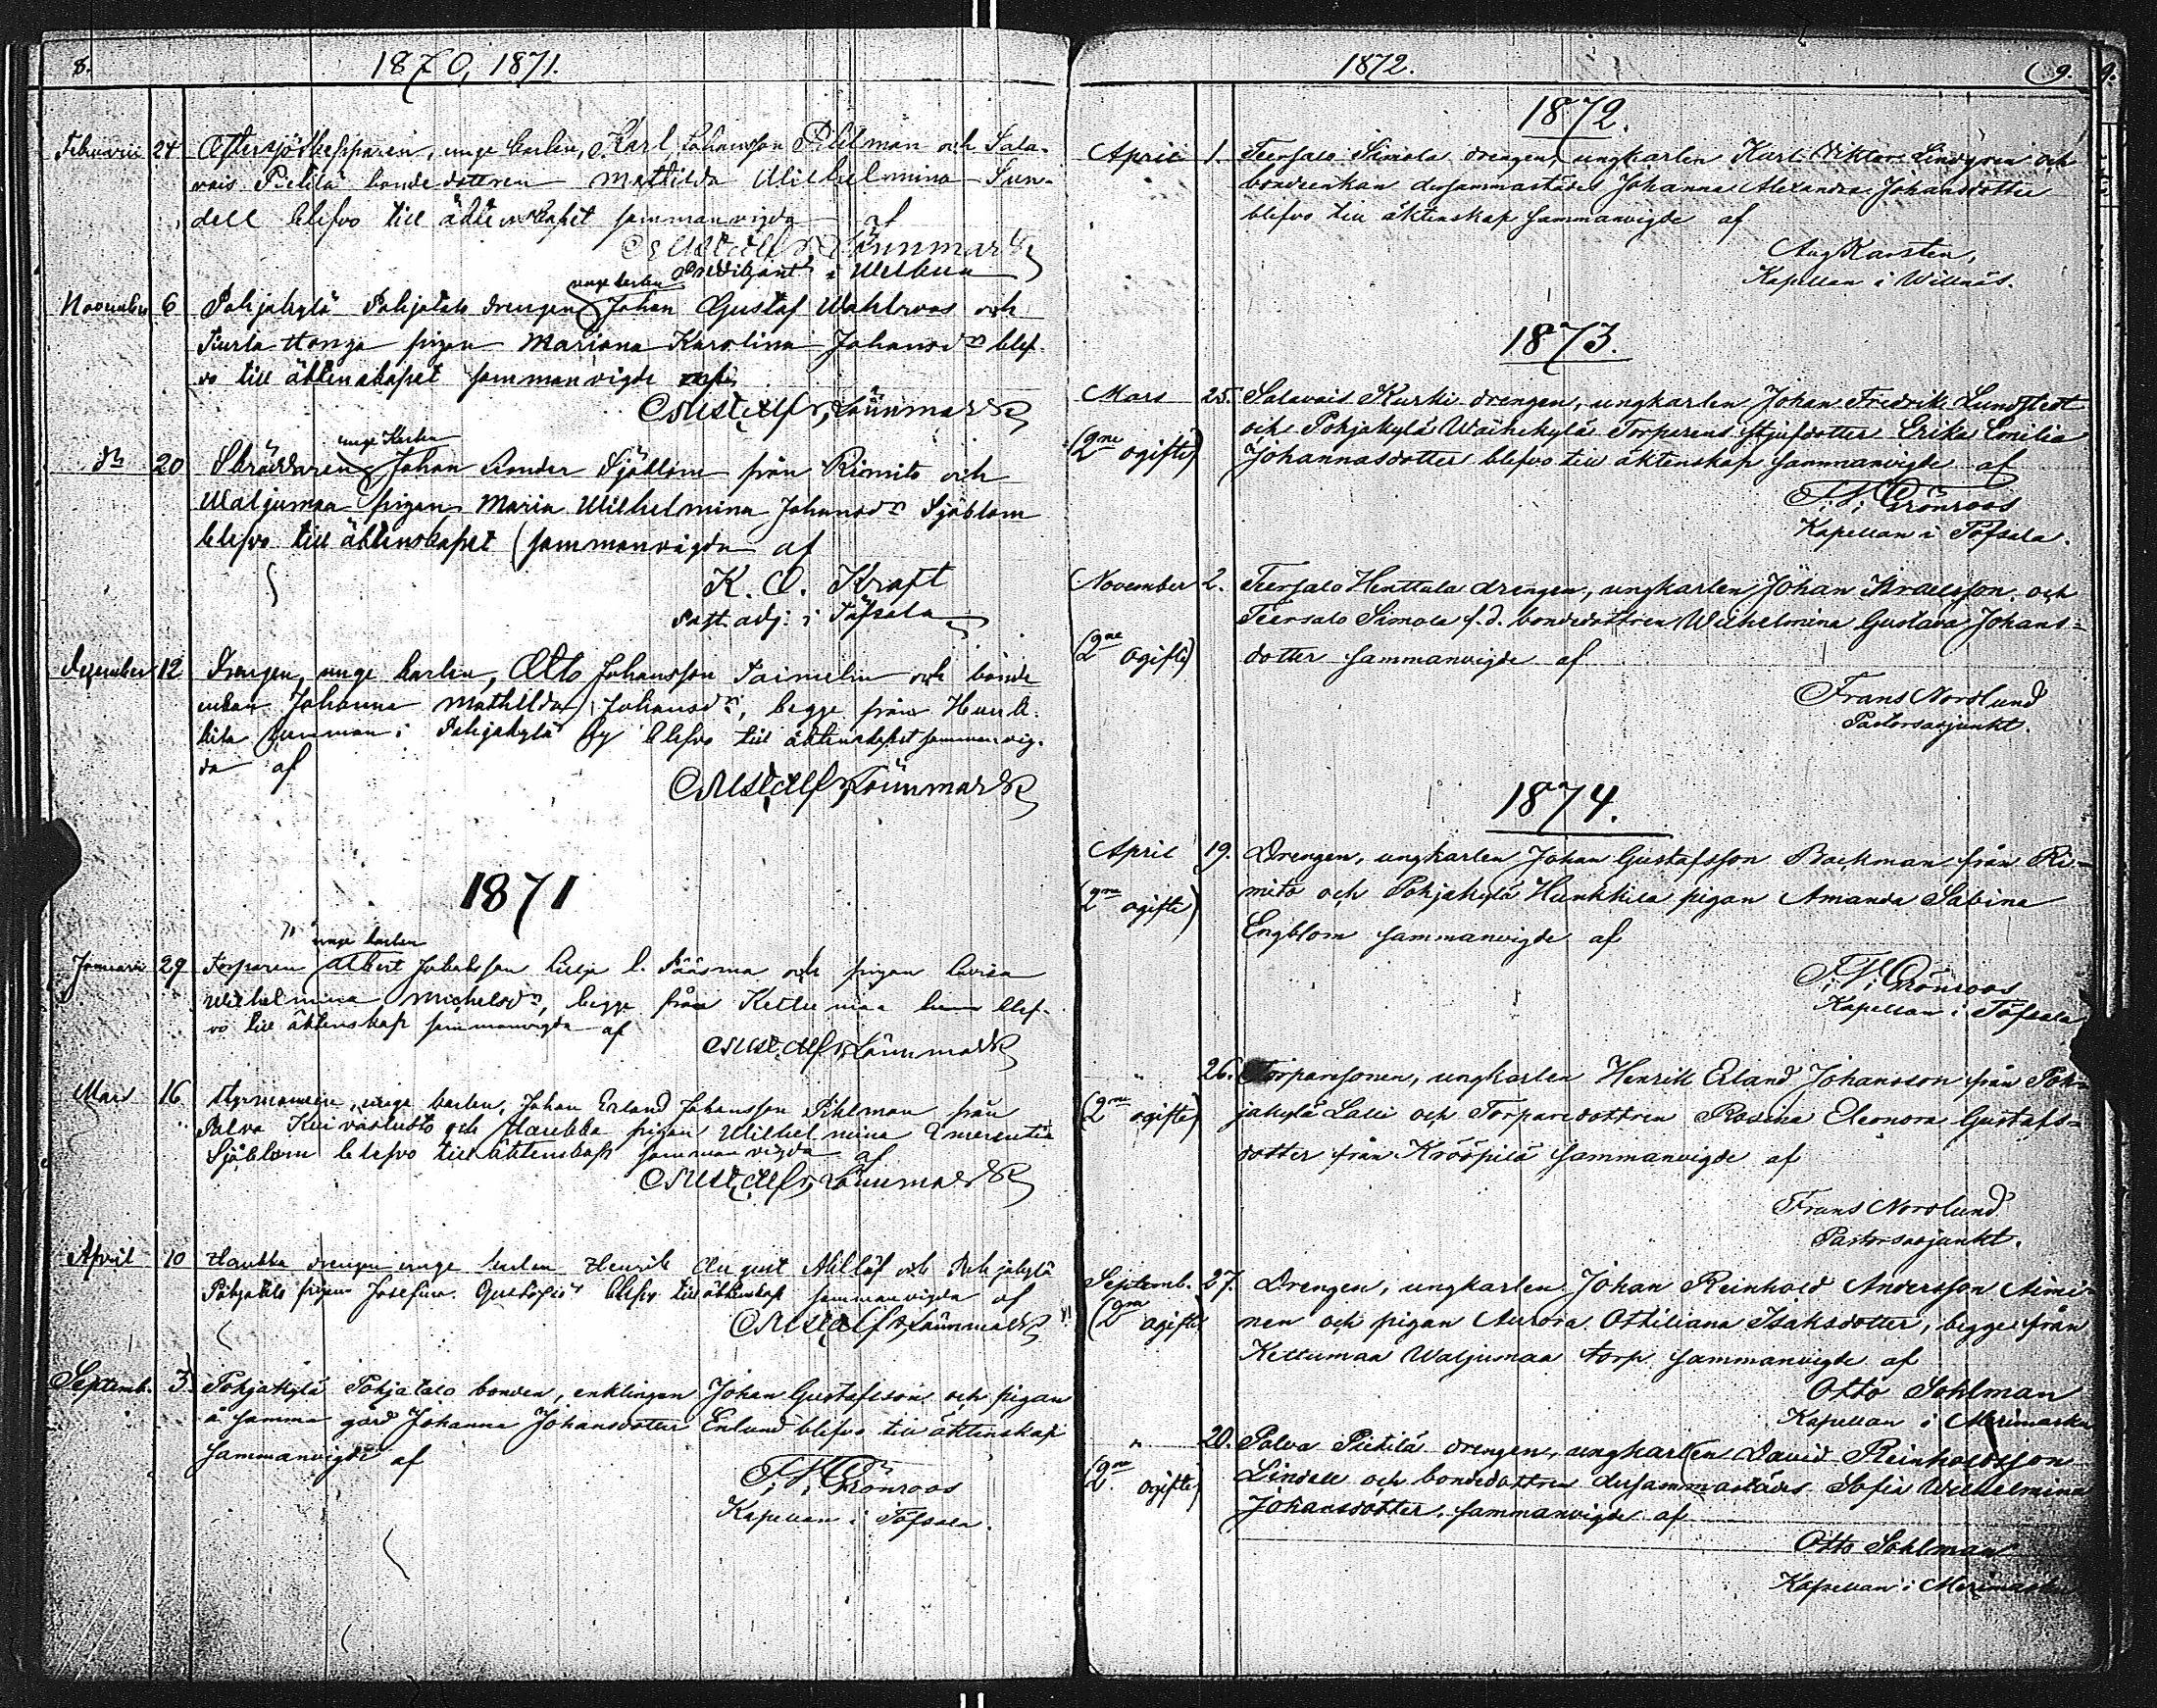 8.
1870, 1871.
Februarii 24 Östersjöskepparen, unge karlen, Karl Johansson Pihlman och Sala-
vais Pietilä bondedottren Mathilda Wilhelmina Sun-
dell blefvo till äktenskapet sammanvigda af
Lönnmark
Predikant i Velkua
November 6 Pohjakylä Pohjatalo drengen unge karlen Johan Gustaf Wahlroos och
pigan Mariana Karolina Johansdr blef-
vo till äktenskapet sammanvigde af
Lönnmark
dn 20 Skräddaren unge karlen Johan Ander Sjöblom från Rimito och
Waljumaa pigan Maria Wilhelmina Johansdr Sjöblom
blefvo till äktenskapet sammanvigda af
K. O. Kraft
past. adj. i Töfsala
December 12 Drengen, unge karlen, Otto Johansson Saimelin och bonde
enkan Johanna Mathilda Johansdr, begge från Hunk-
kila hemman i Pohjakylä by blefvo till äktenskapet sammanvig-
da af
Lönnmark
1871
Januarii 29 Torparen unge karlen Albert Jakobsson Lilja l. Pääsma och pigan Lovisa
Wilhelmina Michelsdr, begge från Kettumaa blef-
vo till äktenskap sammanvigda af
Lönnmark
Mars 16 Styrmannen, unge karlen, Johan Erland Johansson Pihlman från
Palva Kuivastusto och Haukka pigan Wilhelmina Emerentia
Sjöblom blefvo till äktenskap sammanvigda af
Lönnmark
April 10 Haukka drengen unge karlen Henrik August Millöf och Pohjakylä
Pohjatalo pigan Josefina Gustafsdr blefvo till äktenskap sammanvigda af
Lönnmark
Septemb. 3. Pohjakylä Pohjatalo bonden, enklingen Johan Gustafsson och pigan
å samma gård Johanna Johansdotter Enlund blefvo till äktenskap
sammanvigde af
Grönroos
Kapellan i Töfsala.
1872.
9.
1872.
April 1. Teersalo Simola drengen, ungkarlen Karl Viktor Lindgren och
bondeenkan dersammastädes Johanna Alexandra Johansdotter
blefvo till äktenskap sammanvigde af
Aug Karsten,
Kapellan i Willnäs.
1873.
Mars 25. Salavais Kurki drengen, ungkarlen Johan Fredrik Lundstedt
(2ne ogifte) och Pohjakylä Waihekylä Torparens styfdotter Erika Emilia
Johannasdotter blefvo till äktenskap sammanvigde af
Grönroos
Kapellan i Töfsala.
November 2. Teersalo Henttala drengen, ungkarlen Johan Israelsson och
Teersalo Simola f.d. bondedottren Wilhelmina Gustava Johans-
(2ne ogifte) dotter sammanvigde af
Frans Norslund
Pastorsadjunkt.
1874.
April 19. Drengen, ungkarlen Johan Gustafsson Backman från Ri-
(2ne ogifte) mito och Pohjakylä Hunkkila pigan Amanda Sabina
Engblom sammanvigde af
Grönroos
Kapellan i Töfsala
" 26. Torparsonen, ungkarlen Henrik Erland Johansson från Poh-
(2ne ogifte) jakylä Lalli och Torparedottren Rosina Eleonora Gustafs-
dotter från Krööpilä sammanvigde af
Frans Norslund
Pastorsadjunkt.
Septemb. 27. Drengen, ungkarlen Johan Reinhold Andersson Aimi-
(2ne ogifte) nen och pigan Aurora Ottiliana Isaksdotter, begge från
Kettumaa Waljumaa torp sammanvigde af
Otto Sohlman
Kapellan i Merimasku
" 20. Palva Pietilä drengen, ungkarlen David Reinholdsson
(2ne ogifte) Lindell och bondedottren dersammastädes Sofia Wilhelmina
Johansdotter, sammanvigde af
Otto Sohlman
Kapellan i Merimasku